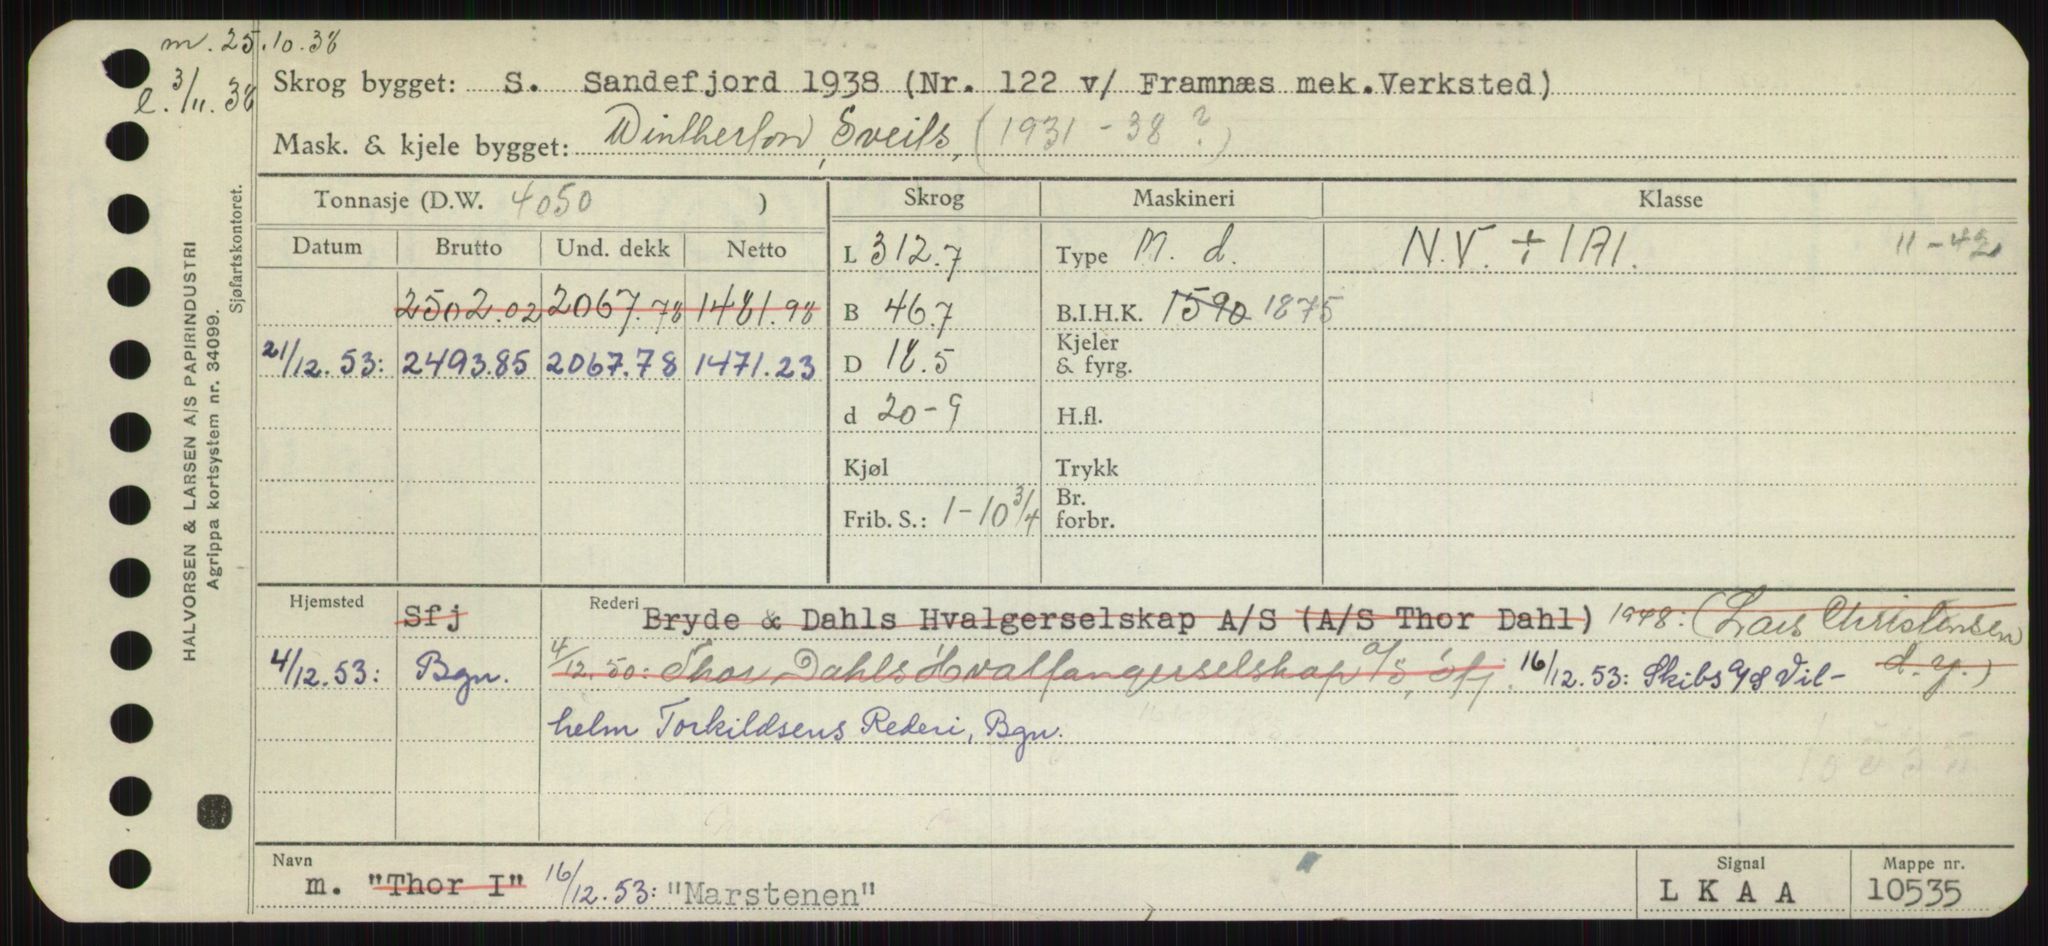 m. 25.10.38
l. 3/11.38
Skrog bygget: S. Sandefjord 1938 (Nr. 122 v/ Framnæs mek.Verksted)
Mask. & kjele bygget: Sveits, (1931-38 ?)
HALVORSEN & LARSEN A/S PAPIRINDUSTRI
Agrippa kortsystem nr. 34099.
Sjøfartskontoret.
Tonnasje (D.W. 4050 ) Skrog Maskineri Klasse
Datum Brutto Und. dekk Netto L 312.7 Type M. d. N.V. + 1A1. 11-42
2502.02 2067.78 1481.98 B 46.7 B.I.H.K. 1590 1875
21/12.53: 2493.85 2067.78 1471.23 D 18.5 Kjeler & fyrg.
d 20-9 H.fl.
Kjøl Trykk
Frib. S.: 1-10 3/4 Br. forbr.
Hjemsted Sfj Rederi Bryde & Dahls Hvalgerselskap A/S (A/S Thor Dahl) 1948: (Lars Christensen
4/12.53: Bgn. 4/12.50: Thor Dahls Hvalfangerselskap a/s, Sfj. 16/12.53: Skibs a/s Vil- d.y.)
helm Torkildsens Rederi, Bgn.
Navn m. "Thor I" 16/12.53: "Marstenen" Signal LKAA Mappe nr. 10535